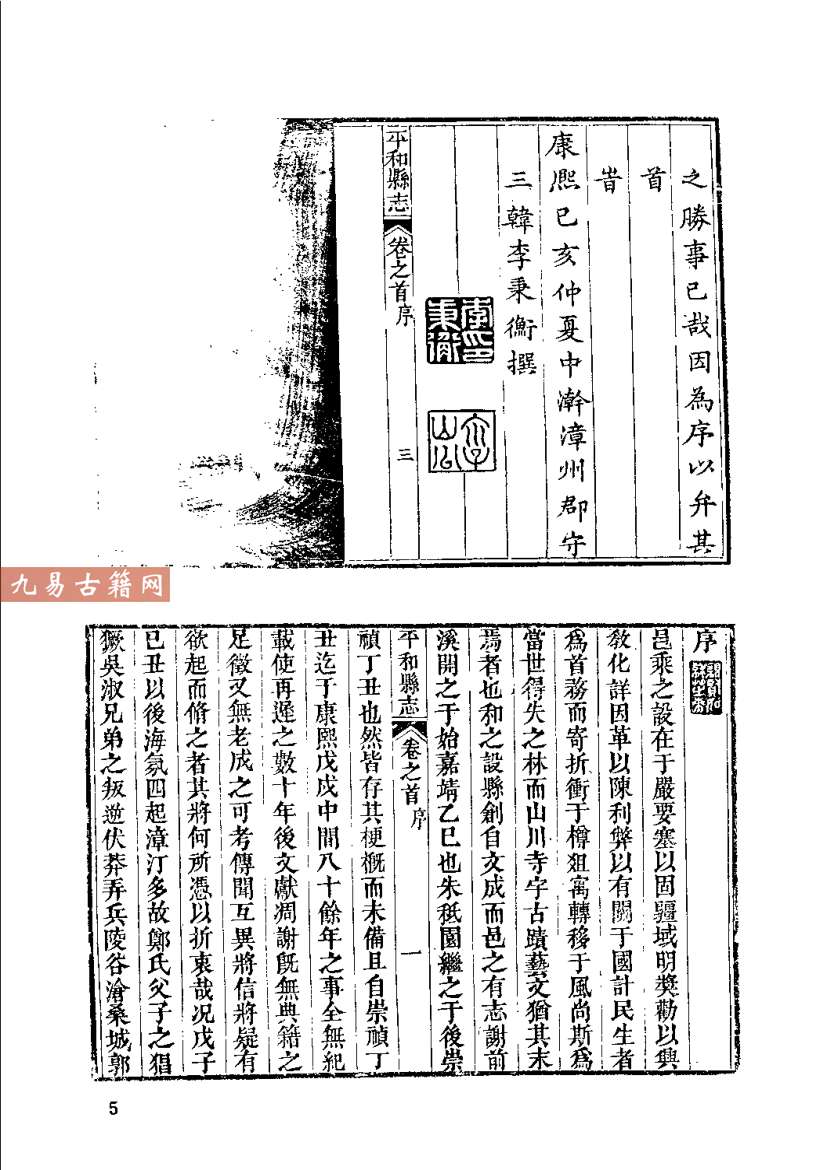 之勝事已哉因為序以弁其
首
旹
康熈己亥仲夏中澣漳州郡守
三韓李秉衡撰
李印秉衡
平和縣志 卷之首 序 三
九易古籍网
序
邑乘之設在于嚴要塞以固疆域明奬勸以興
敎化詳因革以陳利弊以有關于國計民生者
爲首務而寄折衝于樽俎寓轉移于風尚斯爲
當世得失之林而山川寺字古蹟藝文猶其末
焉者也和之設縣創自文成而邑之有志謝前
溪開之于始嘉靖乙巳也朱秪園繼之于後崇
平和縣志 卷之首 序 一
禎丁丑也然皆存其梗概而未備且自崇禎丁
丑迄于康熙戊戌中間八十餘年之事全無紀
載使再遲之數十年後文獻凋謝旣無典籍之
足徵又無老成之可考傳聞互異將信將疑有
欲起而脩之者其將何所憑以折衷哉况戊子
己丑以後海氛四起漳汀多故鄭氏父子之猖
獗吳淑兄弟之叛逆伏莽弄兵陵谷滄桑城郭
5